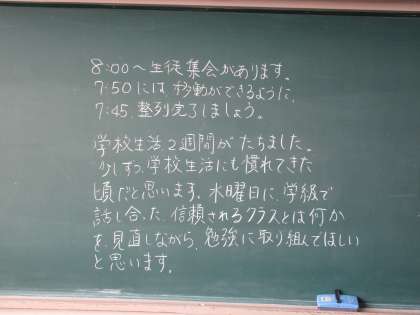 8:00～生徒集会があります。
7:50には移動ができるように、
7:45.整列完了しましょう。
学校生活2週間がたちました。
少しずつ、学校生活にも慣れてきた
頃だと思います。水曜日に、学級で
話し合った、信頼されるクラスとは何か
を、見直しながら、勉強に取り組んでほしい
と思います。